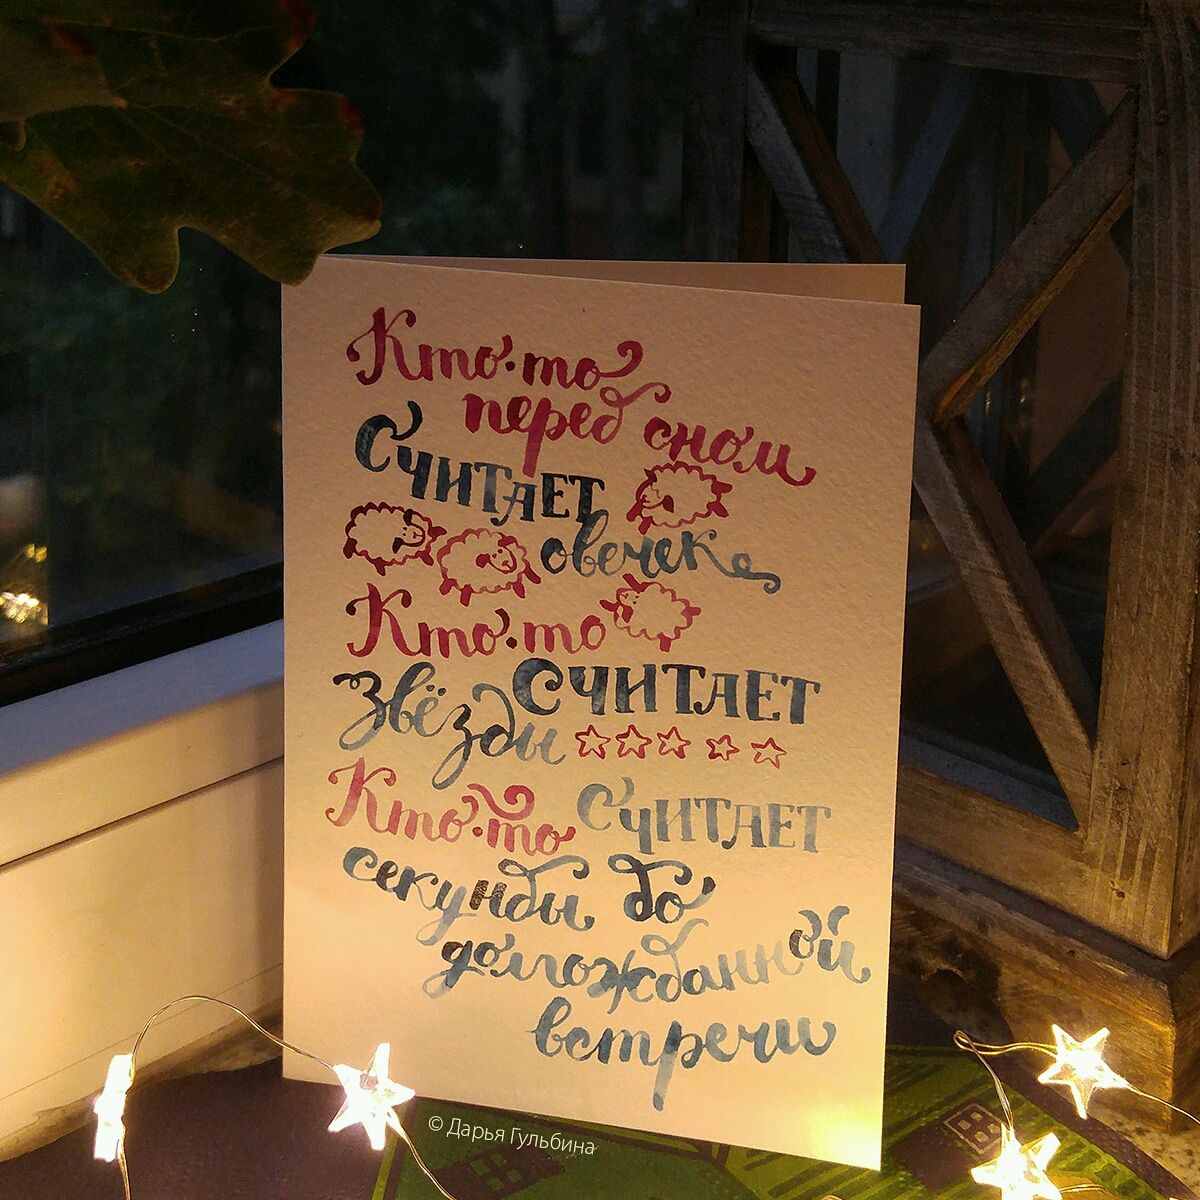 Кто-то
перед сном
Считает
овечек
Кто-то
считает
звёзды
Кто-то считает
секунды до
долгожданной
встречи
© Дарья Гульбина